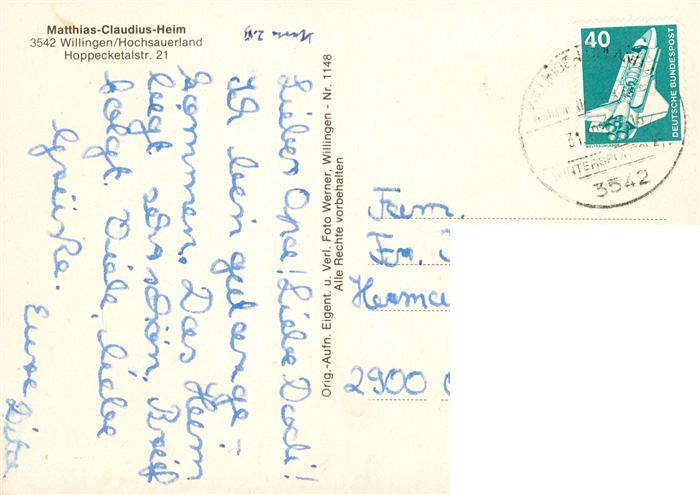 Matthias-Claudius-Heim
3542 Willingen/Hochsauerland
Hoppecketalstr. 21
Lieber Opa! Liebe Dodi!
Ich bin gut ange-
kommen. Das Heim
liegt sehr schön. Brief
folgt. Viele, liebe
Grüße.
Eure
Orig.-Aufn. Eigent. u. Verl. Foto Werner, Willingen - Nr. 1148
Alle Rechte vorbehalten
40
DEUTSCHE BUNDESPOST
WELTRAUMLABOR
WINTERSPORT
3542
Fam.
Fr.
Herma
2900